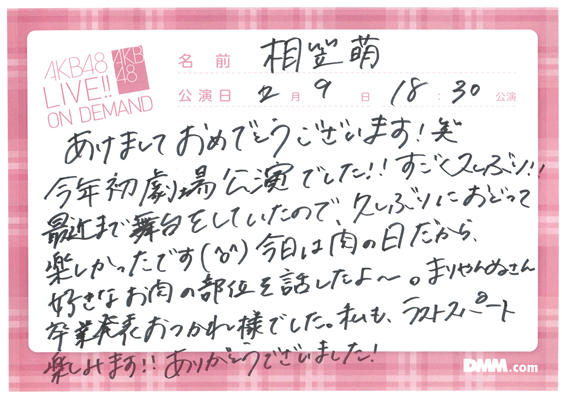 AKB48
LIVE!!
ON DEMAND
AKB
48
名前 相笠萌
公演日 2月9日 18:30公演
あけましておめでとうございます！笑
今年初劇場公演でした!!すごく久しぶり!!
最近まで舞台をしていたので、久しぶりにおどって
楽しかったです(^o^)今日は肉の日だから、
好きなお肉の部位を話したよ〜。まりやんぬさん
卒業発表おつかれ様でした。私も、ラストスパート
楽しみます!!ありがとうございました！
DMM.com